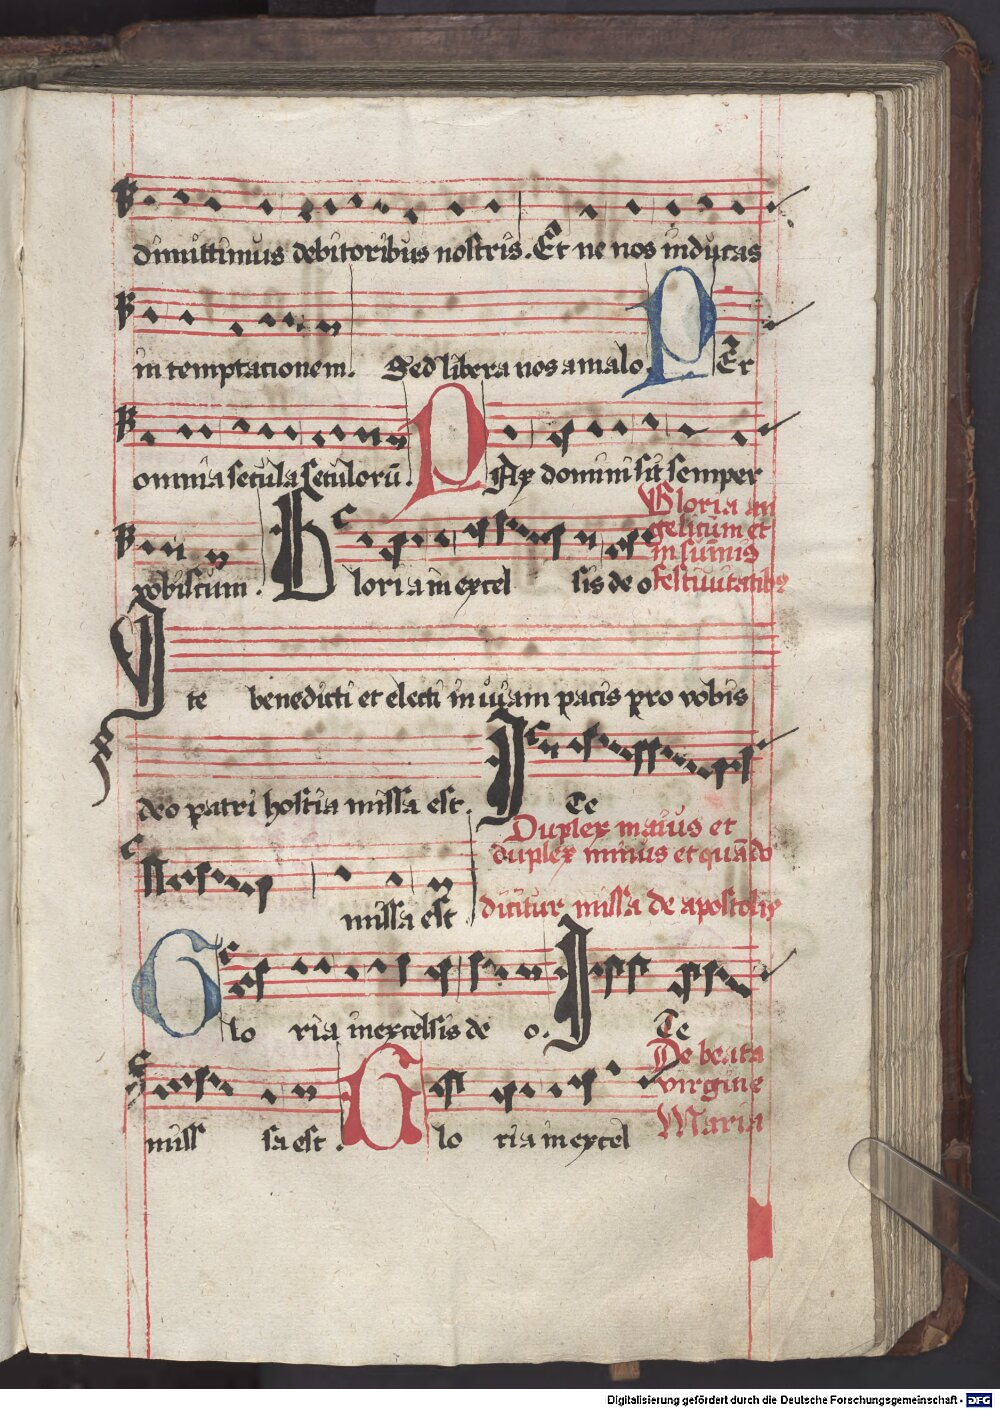 dimittimus debitoribus nostris. Et ne nos inducas
in temptationem. Sed libera nos a malo. P Er
omnia secula seculorū. P Ax domini sit semper
Gloria an
gelicum et
in sūmis
vobiscum. G loria in excel sis deo festiuitatibꝫ
I te benedicti et electi in uiam pacis pro vobis
deo patri hostia missa est. I Te
Duplex maius et
duplex minus et quādo
missa est dicitur missa de apostolis
G lo ria in excelsis de o. I Te
De beata
virgine
Maria
miss sa est. G lo ria in excel
Digitalisierung gefördert durch die Deutsche Forschungsgemeinschaft - DFG